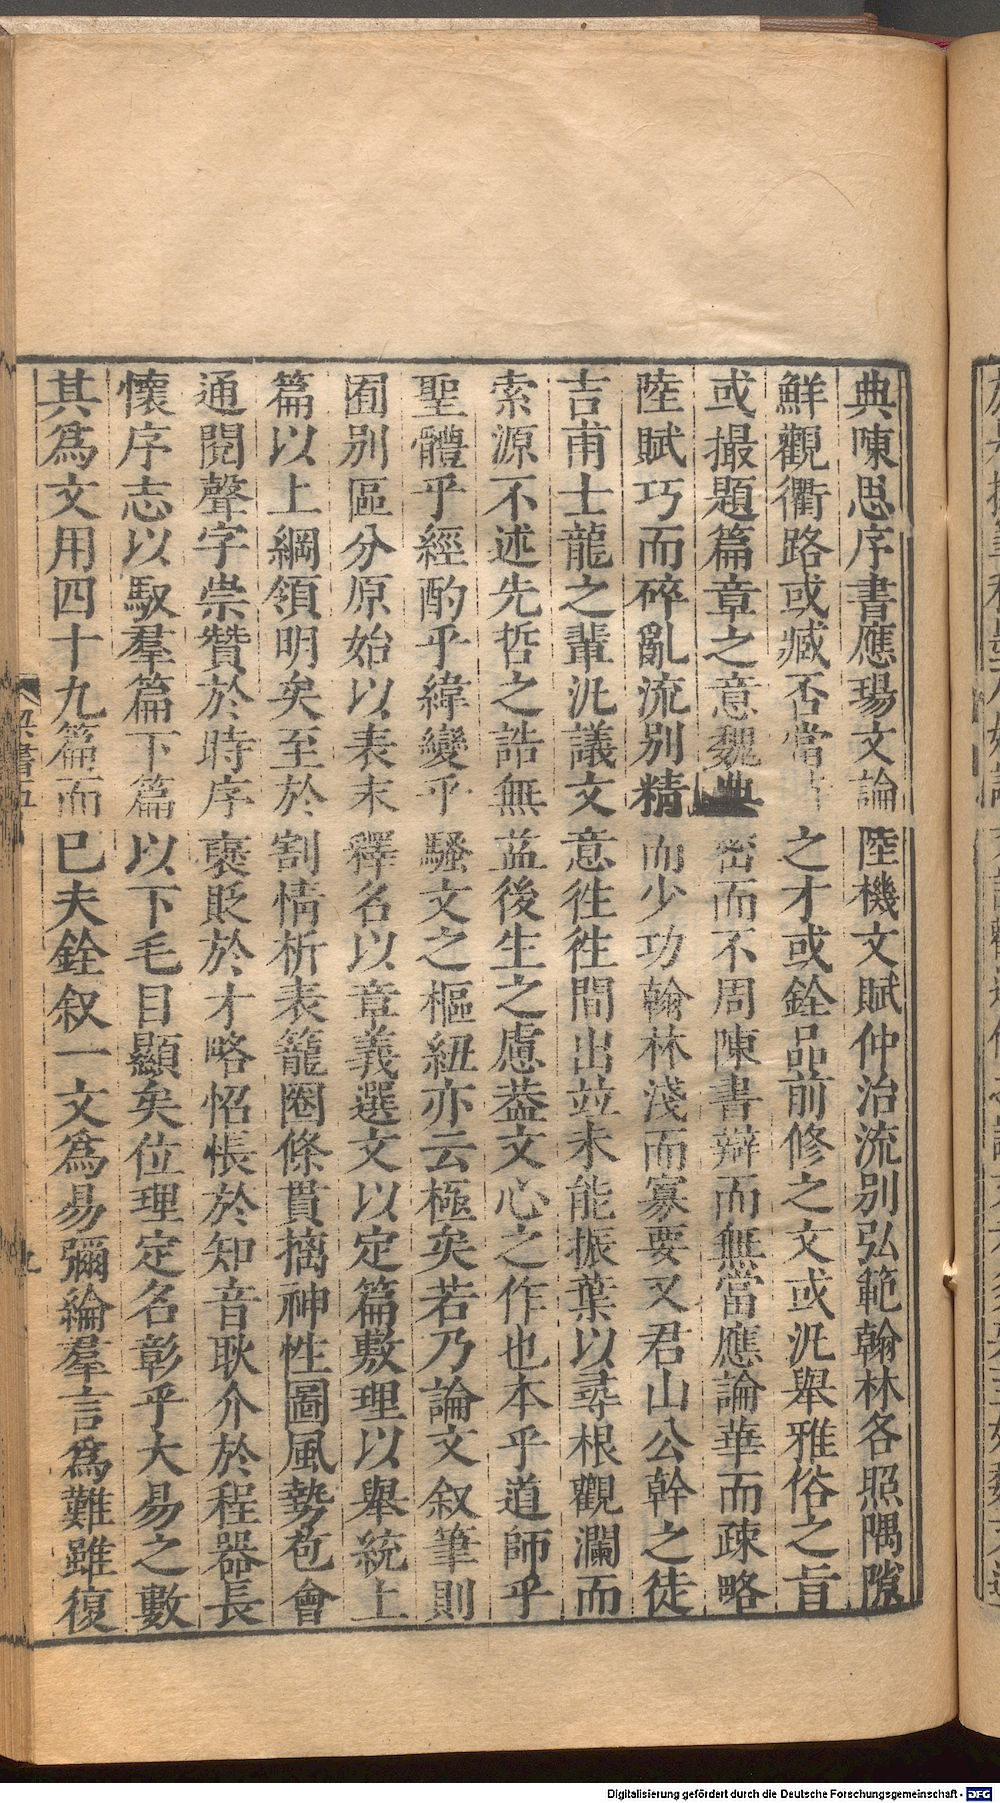 典陳思序書應瑒文論陸機文賦仲洽流別弘範翰林各照隅隙
鮮觀衢路或臧否當時之才或銓品前修之文或汎舉雅俗之旨
或撮題篇章之意魏典密而不周陳書辯而無當應論華而疎略
陸賦巧而碎亂流別精而少功翰林淺而寡要又君山公幹之徒
吉甫士龍之輩汎議文意徃徃間出竝未能振葉以尋根觀瀾而
索源不述先哲之誥無益後生之慮葢文心之作也本乎道師乎
聖體乎經酌乎緯變乎騷文之樞紐亦云極矣若乃論文叙筆則
囿別區分原始以表末釋名以章義選文以定篇敷理以舉統上
篇以上綱領明矣至於割情析表籠圈條貫摛神性圖風勢苞會
通閱聲字崇贊於時序褒貶於才略怊悵於知音耿介於程器長
懷序志以馭羣篇下篇以下毛目顯矣位理定名彰乎大易之數
其爲文用四十九篇而巳夫銓叙一文爲易彌綸羣言爲難雖復
梁書五
九
Digitalisierung gefördert durch die Deutsche Forschungsgemeinschaft - DFG